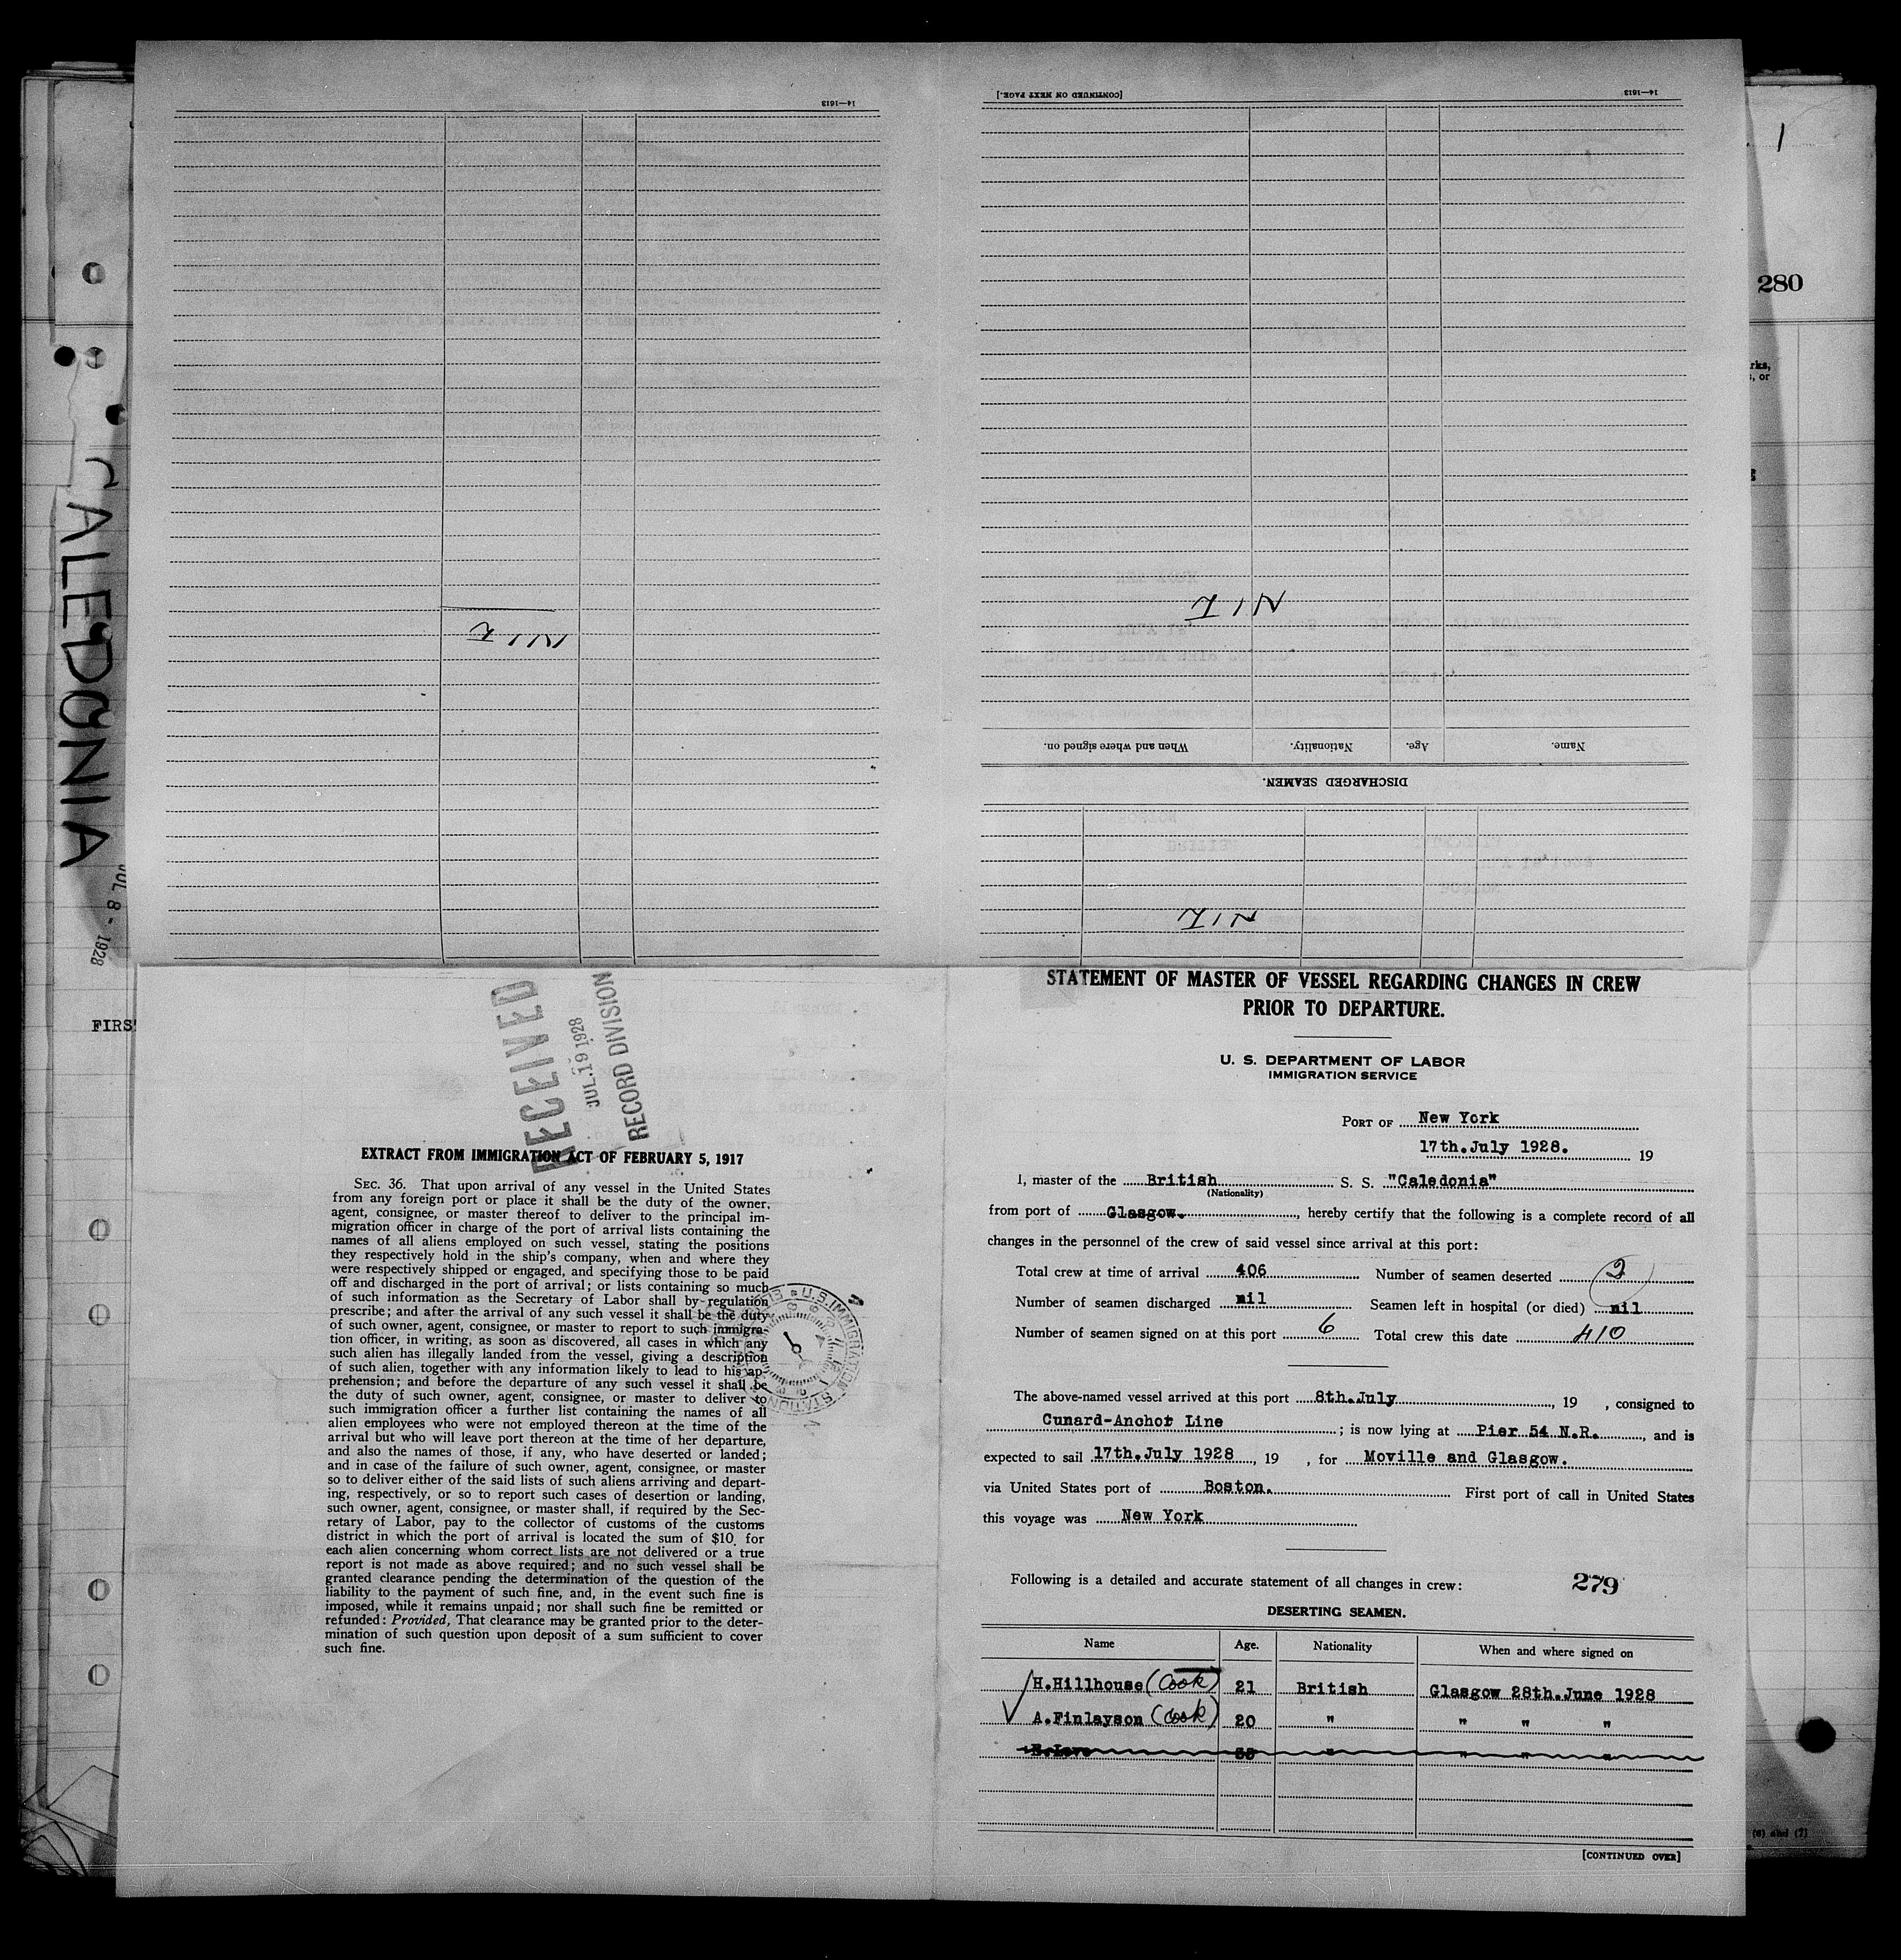 14—1613
[CONTINUED ON NEXT PAGE.]
14—1613
1
280
rks,
, or
NIL
NIL
Name.
Age.
Nationality.
When and where signed on.
DISCHARGED SEAMEN.
NIL
CALEDONIA
JUL 8 - 1928
FIRS
RECEIVED
JUL. 19 1928
RECORD DIVISION
EXTRACT FROM IMMIGRATION ACT OF FEBRUARY 5, 1917
SEC. 36. That upon arrival of any vessel in the United States
from any foreign port or place it shall be the duty of the owner,
agent, consignee, or master thereof to deliver to the principal im-
migration officer in charge of the port of arrival lists containing the
names of all aliens employed on such vessel, stating the positions
they respectively hold in the ship's company, when and where they
were respectively shipped or engaged, and specifying those to be paid
off and discharged in the port of arrival; or lists containing so much
of such information as the Secretary of Labor shall by regulation
prescribe; and after the arrival of any such vessel it shall be the duty
of such owner, agent, consignee, or master to report to such immigra-
tion officer, in writing, as soon as discovered, all cases in which any
such alien has illegally landed from the vessel, giving a description
of such alien, together with any information likely to lead to his ap-
prehension; and before the departure of any such vessel it shall be
the duty of such owner, agent, consignee, or master to deliver to
such immigration officer a further list containing the names of all
alien employees who were not employed thereon at the time of the
arrival but who will leave port thereon at the time of her departure,
and also the names of those, if any, who have deserted or landed;
and in case of the failure of such owner, agent, consignee, or master
so to deliver either of the said lists of such aliens arriving and depart-
ing, respectively, or so to report such cases of desertion or landing,
such owner, agent, consignee, or master shall, if required by the Sec-
retary of Labor, pay to the collector of customs of the customs
district in which the port of arrival is located the sum of $10 for
each alien concerning whom correct lists are not delivered or a true
report is not made as above required; and no such vessel shall be
granted clearance pending the determination of the question of the
liability to the payment of such fine, and, in the event such fine is
imposed, while it remains unpaid; nor shall such fine be remitted or
refunded: Provided, That clearance may be granted prior to the deter-
mination of such question upon deposit of a sum sufficient to cover
such fine.
U.S. IMMIGRATION STATION
STATEMENT OF MASTER OF VESSEL REGARDING CHANGES IN CREW
PRIOR TO DEPARTURE.
U. S. DEPARTMENT OF LABOR
IMMIGRATION SERVICE
PORT OF New York
17th.July 1928. 19
I, master of the British S. S. "Caledonia"
(Nationality)
from port of Glasgow., hereby certify that the following is a complete record of all
changes in the personnel of the crew of said vessel since arrival at this port:
Total crew at time of arrival 406 Number of seamen deserted 2
Number of seamen discharged nil Seamen left in hospital (or died) nil
Number of seamen signed on at this port 6 Total crew this date 410
The above-named vessel arrived at this port 8th.July, 19 , consigned to
Cunard-Anchor Line; is now lying at Pier 54 N.R., and is
expected to sail 17th.July 1928, 19 , for Moville and Glasgow.
via United States port of Boston. First port of call in United States
this voyage was New York
Following is a detailed and accurate statement of all changes in crew: 279
DESERTING SEAMEN.
Name Age. Nationality When and where signed on
H.Hillhouse (Cook) 21 British Glasgow 28th.June 1928
A.Finlayson (Cook) 20 " " " "
[CONTINUED OVER]
(6) and (7)